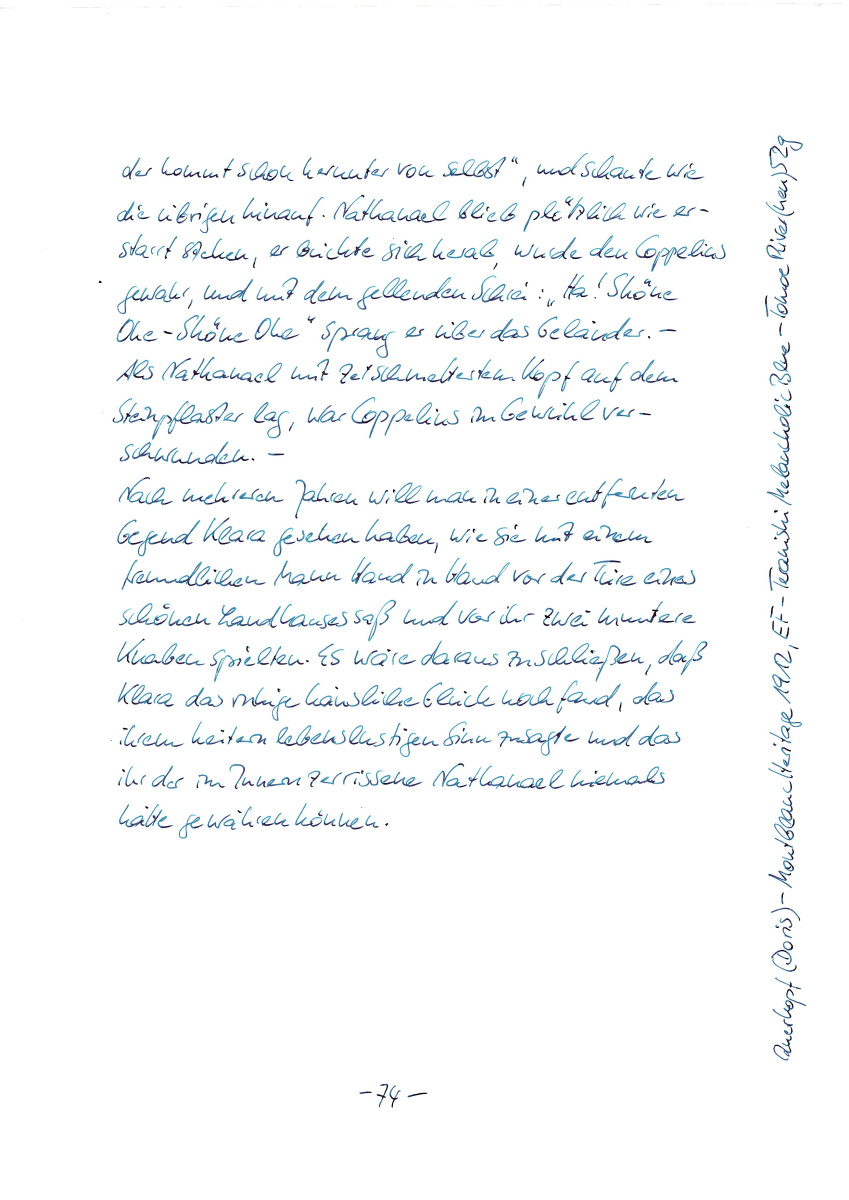 der kommt schon herunter von selbst“, und schaute wie
die übrigen hinauf. Nathanael blieb plötzlich wie er-
starrt stehen, er bückte sich herab, wurde den Coppelius
gewahr, und mit dem gellenden Schrei: „Ha! Sköne
Oke – Sköne Oke“ sprang er über das Geländer. –
Als Nathanael mit zerschmettertem Kopf auf dem
Steinpflaster lag, war Coppelius im Gewühl ver-
schwunden. –
Nach mehreren Jahren will man in einer entfernten
Gegend Klara gesehen haben, wie sie mit einem
freundlichen Mann Hand in Hand vor der Türe eines
schönen Landhauses saß und vor ihr zwei muntere
Knaben spielten. Es wäre daraus zu schließen, daß
Klara das ruhige häusliche Glück noch fand, das
ihrem heitern lebenslustigen Sinn zusagte und das
ihr der im Innern zerrissene Nathanael niemals
hätte gewähren können.
– 74 –
Querkopf (Doris) – Montblanc Heritage 1912, EF – Teranishi Melancholic Blue – Tomoe River (neu) 52g